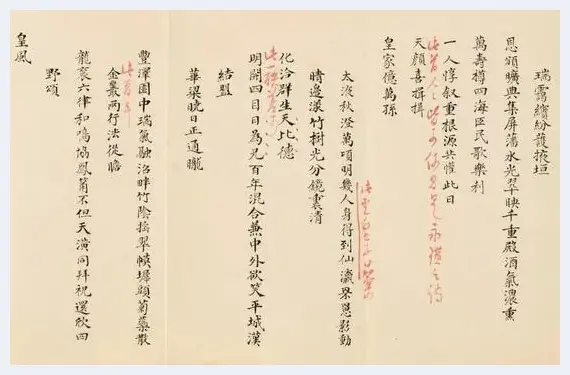 瑞靄繽紛護掖垣
恩頒曠典集屏藩水光翠映千重殿酒氣濃熏
萬壽樽四海臣民歌樂利
一人惇叙重根源共惟此日
此首人皆可作只是
天顏喜揖揖
皇家億萬孫
太液秋澄萬頃明幾人身得到仙瀛鳧影動
晴邊漾竹樹光分鏡裏清
化洽群生天比德
明開四目日為兄百年混合兼中外欲笑平城漢
結盟
華梁曉日正曈曨
豐澤園中瑞氣融沼畔竹陰搖翠幙墀頭菊蘂散
金叢兩行法從瞻
龍袞六律和鳴協鳳不但天潢同拜祝還欣四
野頌
皇風